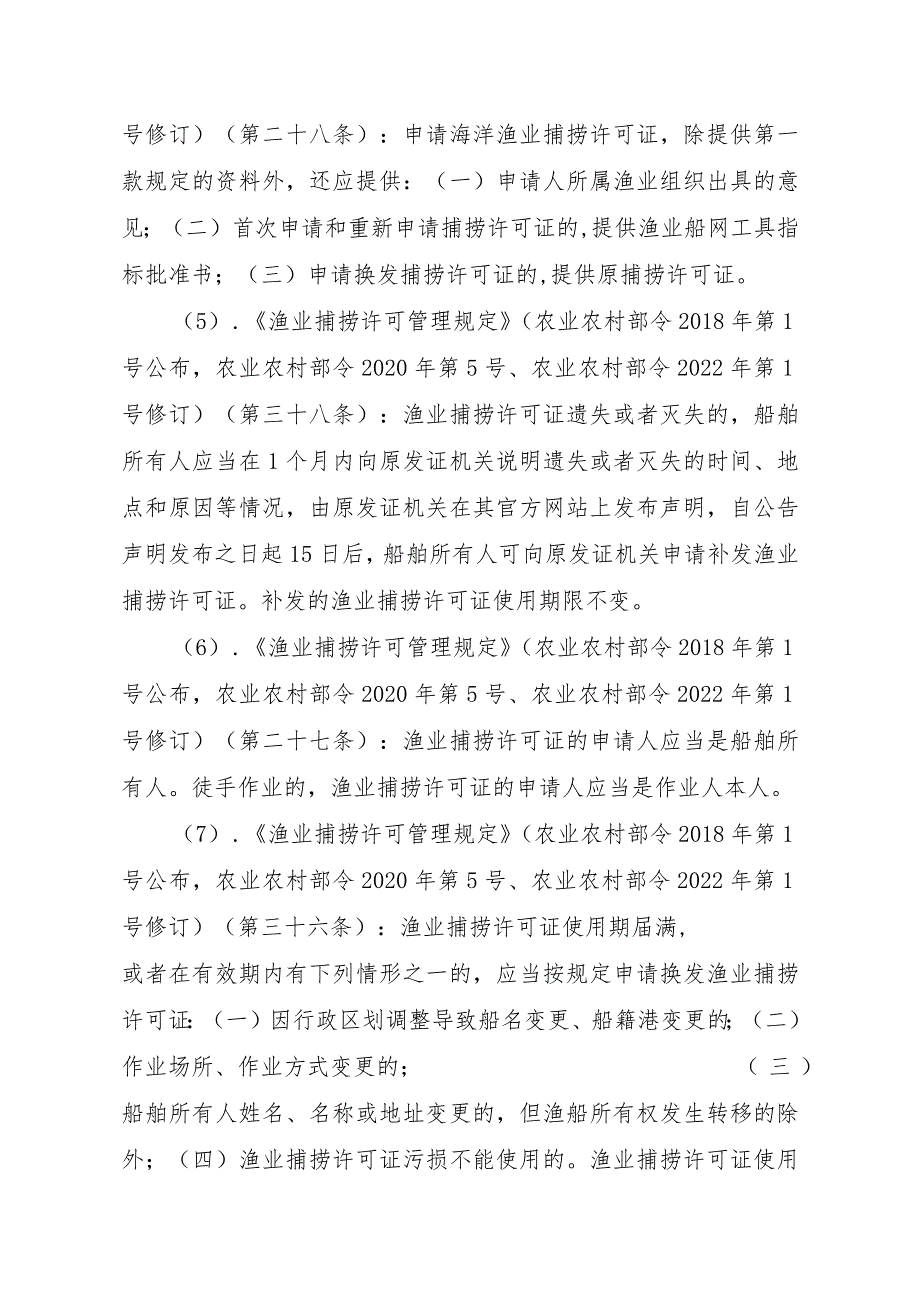 号修订）（第二十八条）：申请海洋渔业捕捞许可证，除提供第一
款规定的资料外，还应提供：（一）申请人所属渔业组织出具的意
见；（二）首次申请和重新申请捕捞许可证的,提供渔业船网工具指
标批准书；（三）申请换发捕捞许可证的,提供原捕捞许可证。
（5）.《渔业捕捞许可管理规定》（农业农村部令 2018 年第 1
号公布，农业农村部令 2020 年第 5 号、农业农村部令 2022 年第 1
号修订）（第三十八条）：渔业捕捞许可证遗失或者灭失的，船舶
所有人应当在 1 个月内向原发证机关说明遗失或者灭失的时间、地
点和原因等情况，由原发证机关在其官方网站上发布声明，自公告
声明发布之日起 15 日后，船舶所有人可向原发证机关申请补发渔业
捕捞许可证。补发的渔业捕捞许可证使用期限不变。
（6）.《渔业捕捞许可管理规定》（农业农村部令 2018 年第 1
号公布，农业农村部令 2020 年第 5 号、农业农村部令 2022 年第 1
号修订）（第二十七条）：渔业捕捞许可证的申请人应当是船舶所
有人。徒手作业的，渔业捕捞许可证的申请人应当是作业人本人。
（7）.《渔业捕捞许可管理规定》（农业农村部令 2018 年第 1
号公布，农业农村部令 2020 年第 5 号、农业农村部令 2022 年第 1
号修订）（第三十六条）：渔业捕捞许可证使用期届满,
或者在有效期内有下列情形之一的，应当按规定申请换发渔业捕捞
许可证：（一）因行政区划调整导致船名变更、船籍港变更的；（二）
作业场所、作业方式变更的； （三）
船舶所有人姓名、名称或地址变更的，但渔船所有权发生转移的除
外；（四）渔业捕捞许可证污损不能使用的。渔业捕捞许可证使用